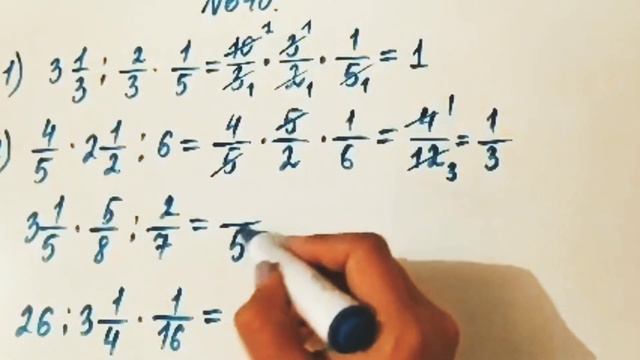 1) 3 1/3 : 2/3 · 1/5 = 10/3 · 3/2 · 1/5 = 1
) 4/5 · 2 1/2 : 6 = 4/5 · 5/2 · 1/6 = 4/12 = 1/3
3 1/5 · 5/8 : 2/7 = /5
26 : 3 1/4 · 1/16 =